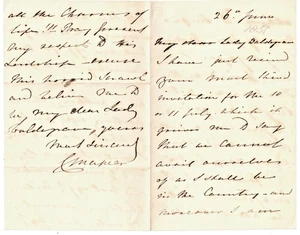 26th June
My dear Lady
I have just received
your most kind
invitation for the 10
or 11 July which it
grieves me to say
that we cannot
avail ourselves
of as I shall be
in the Country - and
moreover I am
all the Charms of
life !!! Pray present
my respect to his
Lordship - excuse
this horrid Scrawl
and believe me to
be, my dear Lady
yours
most Sincerely